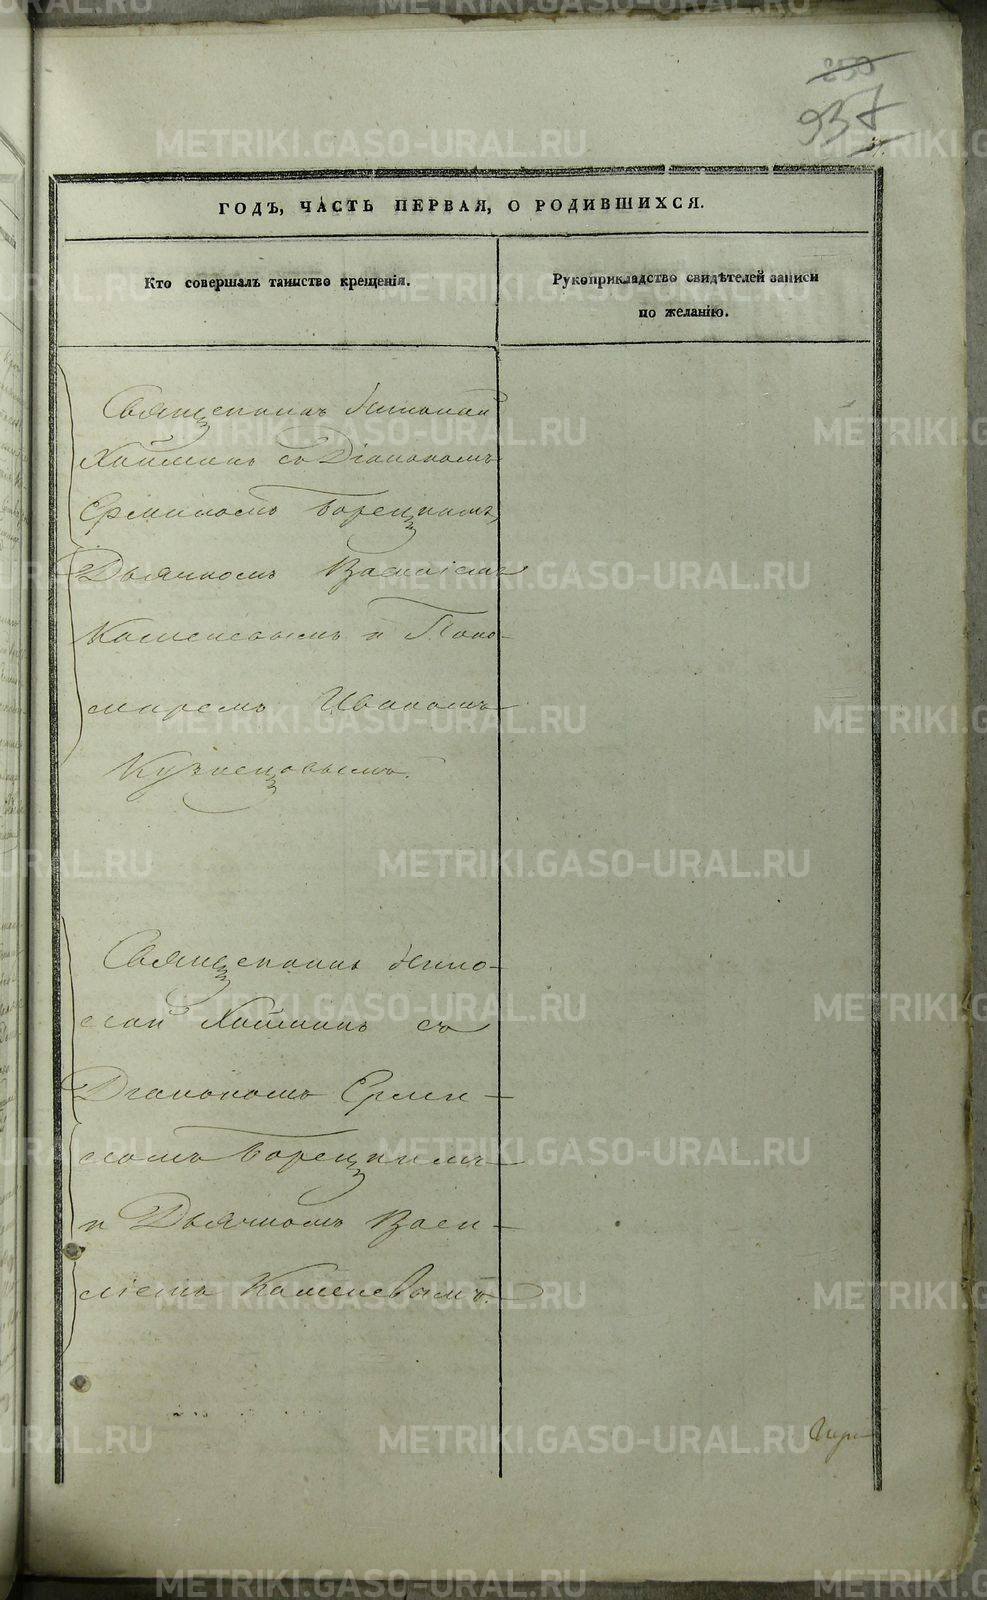 250
937
ГОДЪ, ЧАСТЬ ПЕРВАЯ, О РОДИВШИХСЯ.
Кто совершалъ таинство крещенія.
Рукоприкладство свидѣтелей записи
по желанію.
Священникъ Николай
Хайманъ съ Діакономъ
Ермиломъ Борецкимъ,
Дьячкомъ Василіемъ
Каменевымъ и Поно-
маремъ Иваномъ
Кузнецовымъ.
Священникъ Нико-
лай Хайманъ съ
Діакономъ Ерми-
ломъ Борецкимъ
и Дьячкомъ Васи-
ліемъ Каменевымъ.
METRIKI.GASO-URAL.RU